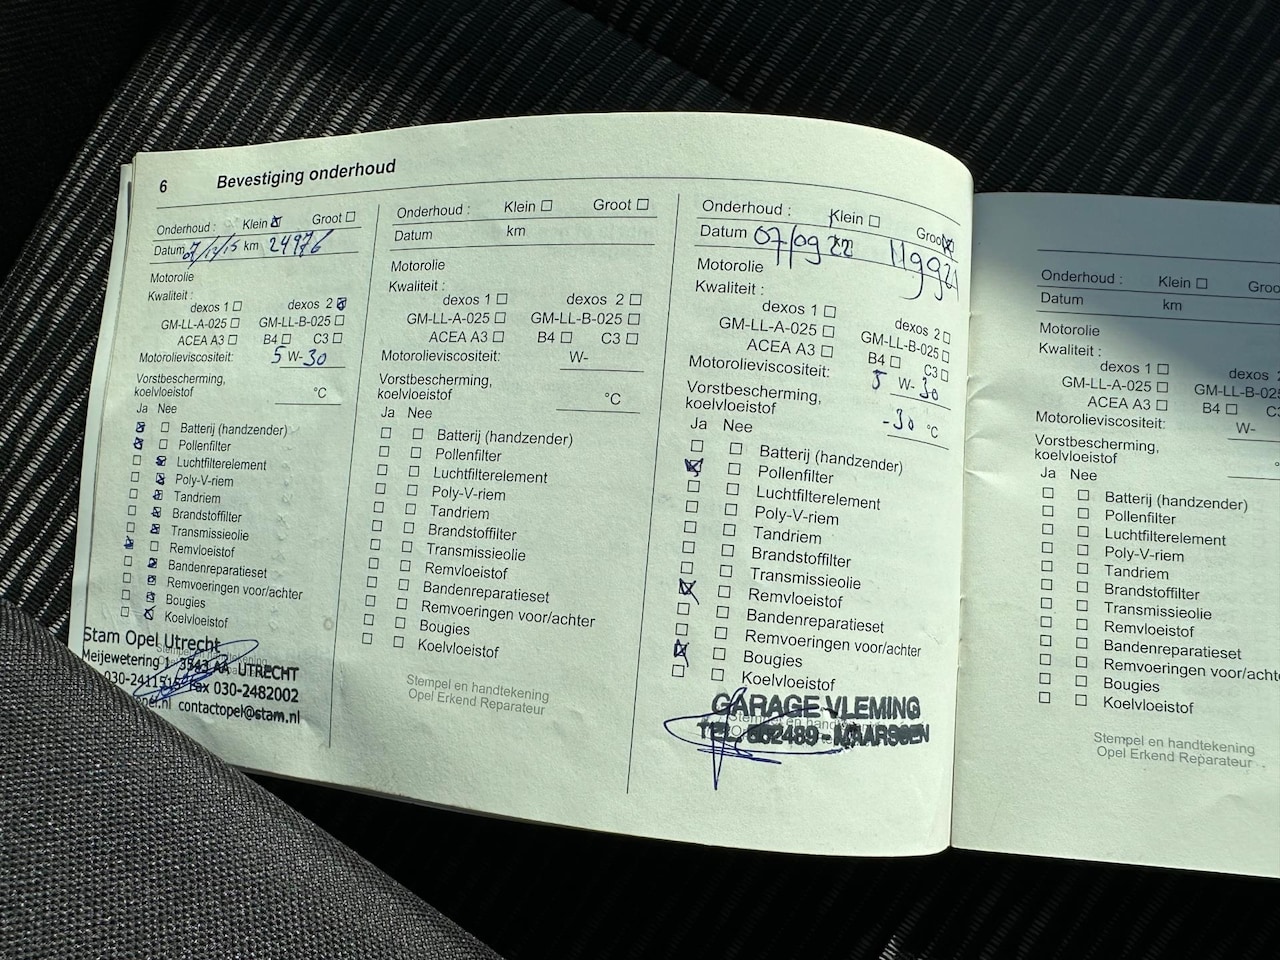 6 Bevestiging onderhoud
Onderhoud : Klein Groot
Datum 7/12/15 km 24976
Motorolie
Kwaliteit :
dexos 1 dexos 2
GM-LL-A-025 GM-LL-B-025
ACEA A3 B4 C3
Motorolieviscositeit: 5 W-30
Vorstbescherming,
koelvloeistof °C
Ja Nee
Batterij (handzender)
Pollenfilter
Luchtfilterelement
Poly-V-riem
Tandriem
Brandstoffilter
Transmissieolie
Remvloeistof
Bandenreparatieset
Remvoeringen voor/achter
Bougies
Koelvloeistof
Stam Opel Utrecht
Meijewetering 1 3543 AA UTRECHT
030-2411516 Fax 030-2482002
contactopel@stam.nl
Onderhoud : Klein Groot
Datum km
Motorolie
Kwaliteit :
dexos 1 dexos 2
GM-LL-A-025 GM-LL-B-025
ACEA A3 B4 C3
Motorolieviscositeit: W-
Vorstbescherming,
koelvloeistof °C
Ja Nee
Batterij (handzender)
Pollenfilter
Luchtfilterelement
Poly-V-riem
Tandriem
Brandstoffilter
Transmissieolie
Remvloeistof
Bandenreparatieset
Remvoeringen voor/achter
Bougies
Koelvloeistof
Stempel en handtekening
Opel Erkend Reparateur
Onderhoud : Klein Groot
Datum 07/09 22 119921
Motorolie
Kwaliteit :
dexos 1 dexos 2
GM-LL-A-025 GM-LL-B-025
ACEA A3 B4 C3
Motorolieviscositeit: 5 W-30
Vorstbescherming,
koelvloeistof -30 °C
Ja Nee
Batterij (handzender)
Pollenfilter
Luchtfilterelement
Poly-V-riem
Tandriem
Brandstoffilter
Transmissieolie
Remvloeistof
Bandenreparatieset
Remvoeringen voor/achter
Bougies
Koelvloeistof
GARAGE VLEMING
TEL. 562489 - MAARSSEN
Onderhoud : Klein Groo
Datum km
Motorolie
Kwaliteit :
dexos 1 dexos 2
GM-LL-A-025 GM-LL-B-025
ACEA A3 B4 C3
Motorolieviscositeit: W-
Vorstbescherming,
koelvloeistof
Ja Nee
Batterij (handzender)
Pollenfilter
Luchtfilterelement
Poly-V-riem
Tandriem
Brandstoffilter
Transmissieolie
Remvloeistof
Bandenreparatieset
Remvoeringen voor/achte
Bougies
Koelvloeistof
Stempel en handtekening
Opel Erkend Reparateur